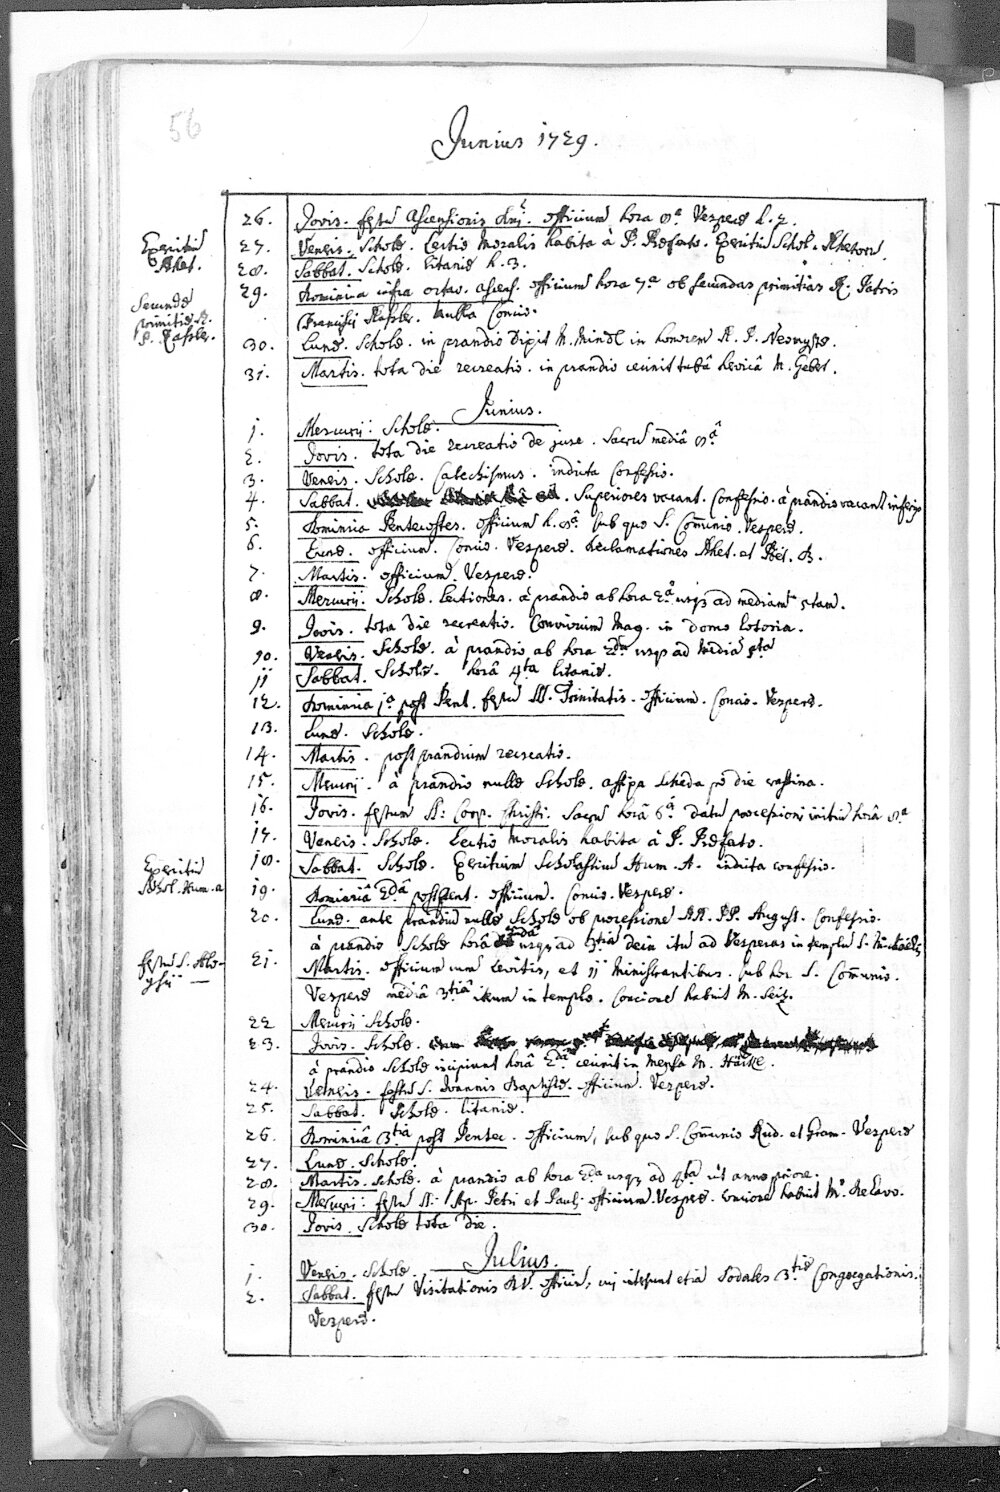 56
Junius 1729.
26. Jovis. festū Ascensionis Dnj. officium hora 8ª Vesperæ h. 2.
Exercitiū Rhet.
27. Veneris. Scholæ. Lectio Moralis habita à P. Præfecto. Exercitiū Schol. Rhetorū.
28. Sabbat. Scholæ. litaniæ h. 3.
29. Dominica infra octav. Ascens. officium hora 7ª ob secundas primitias R. Patris
Secundæ primitiæ R. P. Kessler.
Francisci Kessler. nulla Concio.
30. Lunæ. Scholæ. in prandio M. Mindl in honorem R. P. Neomystæ.
31. Martis. tota die recreatio. in prandio cecinit tubâ M. Gebet.
Junius.
1. Mercurij. Scholæ.
2. Jovis. tota die recreatio de jure. Sacrū mediâ 8ª
3. Veneris. Scholæ. Catechismus. indicta Confessio.
4. Sabbat. Superiores vacant. Confessio. à prandio vacant inferio
5. Dominica Pentecostes. officium h. 8ª sub quo S. Com̄unio. Vesperæ.
6. Lunæ. officium. Concio. Vesperæ. declamationes Rhet. et Poët. B.
7. Martis. officium. Vesperæ.
8. Mercurij. Scholæ. lectiones. à prandio ab hora 2ª usq3 ad mediam 5tam.
9. Jovis. tota die recreatio. Convivium Mag. in domo lotoria.
10. Veneris. Scholæ. à prandio ab hora 2da usq3 ad mediā 5ta
11 Sabbat. Scholæ. horâ 4ta litaniæ.
12. Dominica 1ª post Pent. festū SS. Trinitatis. officium. Concio. Vesperæ.
13. Lunæ. Scholæ.
14. Martis. post prandium recreatio.
15. Mercurij. à prandio nullæ Scholæ. affixa scheda pō die crastina.
16. Jovis. festum SS: Corp. Christi. Sacrū horâ 6ª datū processioni initiū horâ 8ª
17. Veneris. Scholæ. Lectio Moralis habita à P. Præfecto.
Exercitiū Schol. Hum. a
18. Sabbat. Scholæ. Exercitium Scholasticū Hum. A. indicta confessio.
19. Dominicâ 2dâ post Pent. officium. Concio. Vesperæ.
20. Lunæ. ante prandiū nullæ Scholæ ob processionē RR. PP. August. Confessio.
à prandio Scholæ horâ 2dâ usq3 ad 3tiā dein itū ad Vesperas in templū S. Michaëlis
festū S. Aloysij
21. Martis. officium cum levitis, et 11 Ministrantibus. sub hoc S. Com̄unio.
Vesperæ mediâ 3tiâ iterum in templo. Concionē habuit M. Seiz.
22 Mercurij Scholæ.
23. Jovis. Scholæ.
à prandio Scholæ incipiunt horâ 2dâ cecinit in mensa M. Häcke.
24. Veneris. festū S. Joannis Baptistæ. officium. Vesperæ.
25. Sabbat. Scholæ. litaniæ.
26. Dominicâ 3tiâ post Pentec. officium, sub quo S. Com̄unio Rud. et Gram. Vesperæ
27. Lunæ. Scholæ.
28. Martis. Scholæ. à prandio ab hora 2da usq3 ad 4tā ut anno priore.
29. Mercurij festū SS. Ap. Petri et Pauli officium. Vesperæ. concionē habuit Mr.
30. Jovis. Scholæ tota die.
Julius.
1. Veneris. Scholæ.
2. Sabbat. festū Visitationis BV. officiū, cuj intersunt etiā Sodales 3tiæ Congregationis.
Vesperæ.